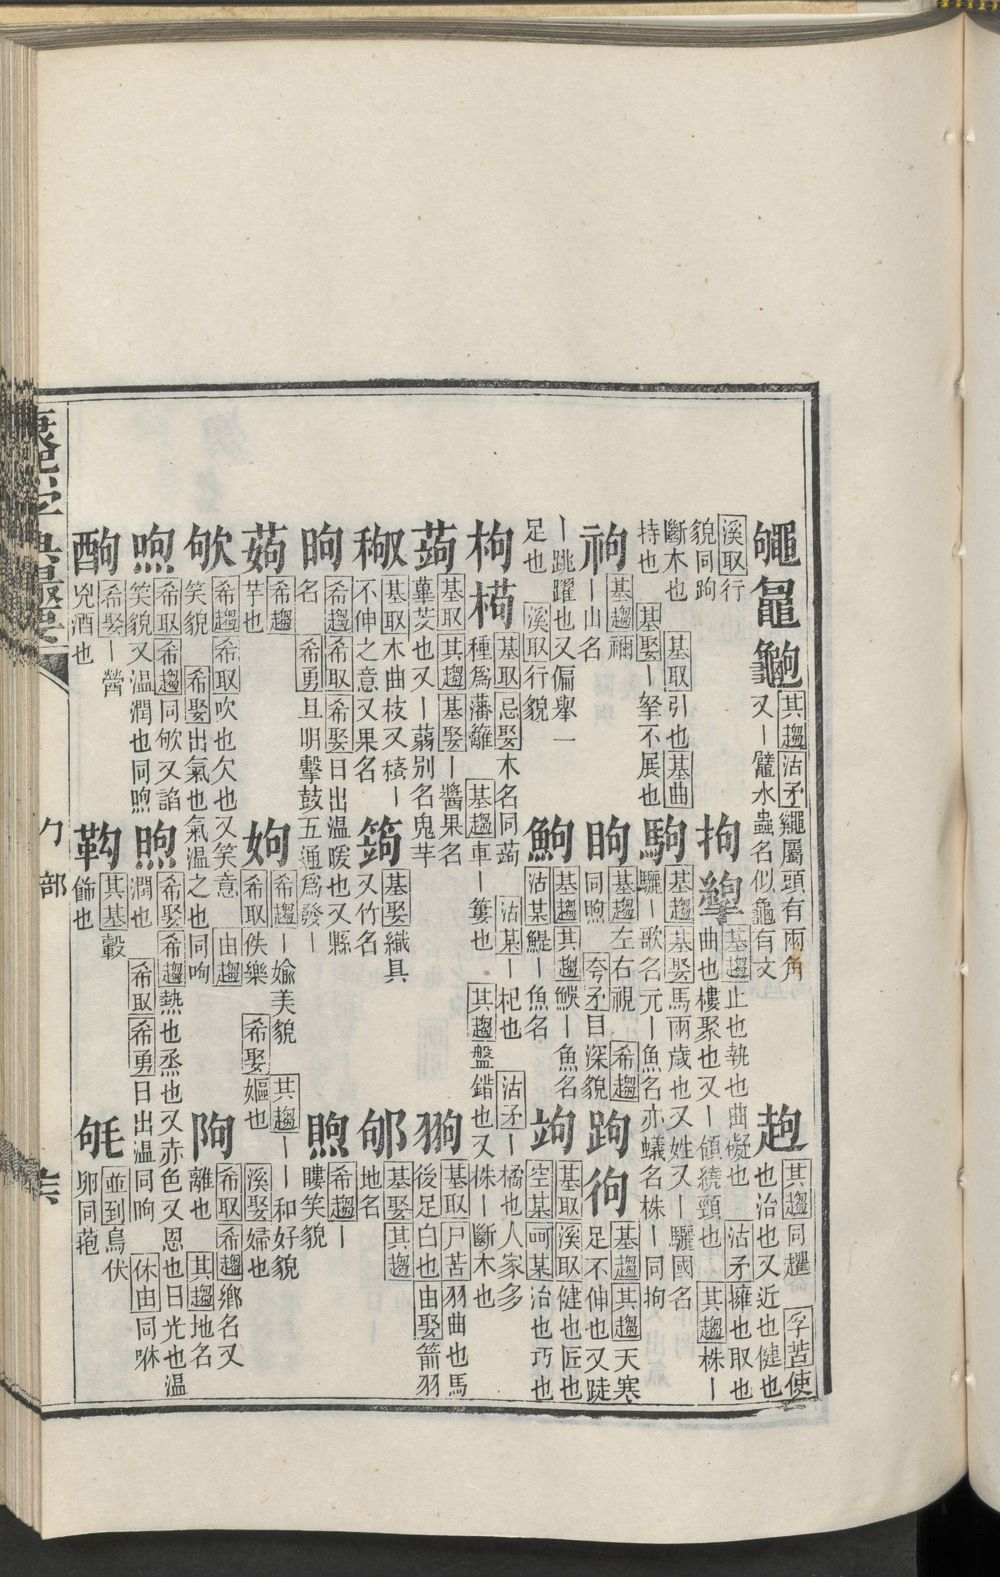 其趨沽矛鼅屬頭有兩角
又一鼊水蟲名似龜有文
趜其趨同趯孚苦使
也治也又近也健也
溪取行
貌同跔
斷木也基取引也基曲
持也基娶一拏不展也
拘基趨止也執也曲礙也沽矛擁也取也
曲也樓聚也又一領繞頸也其趨株一
駒基趨基娶馬兩歲也又姓又一驪國名
驪一歌名元一魚名亦蟻名株一同拘
祠基趨禰
一山名
眗基趨左右視希趨
同煦夸矛目深貌
跔徇基趨其趨天寒
足不伸也又跿
一跳躍也又偏舉一
足也溪取行貌
鮈基趨其趨鯸一魚名
沽某鯷一魚名
竘基取溪取健也匠也
空某呵某治也巧也
枸椅基取忌娶木名同蒟沽某一杞也沽矛一橘也人家多
種爲藩籬基趨車一簍也其趨盤錯也又株一斷木也
蒟基取其趨基娶一醬果名
蓽茇也又一蒻别名鬼芋
翑基取尸苦羽曲也馬
後足白也由娶箭羽
椒基取木曲枝又䅩一
不伸之意又果名
笱基娶織具
又竹名
邭基娶其趨
地名
昫希趨希取希娶日出温暖也又縣
名希勇旦明擊鼓五通爲發一
喣希趨一
瞜笑貌
蒟希趨
芋也
姁希趨一媮美貌其趨一一和好貌
希取佚樂希娶嫗也溪娶婦也
欨希趨希取吹也欠也又笑意由趨
笑貌希娶出氣也氣温之也同呴
䧁希取希趨鄉名又
離也其趨地名
喣希取希趨同欨又諂
笑貌又温潤也同煦
煦希娶希趨熱也烝也又赤色又恩也日光也温
潤也希取希勇日出温同呴休由同咻
酗希娶一醟
兇酒也
軥其基轂
飾也
㲒並到鳥伏
卵同菢
勹部